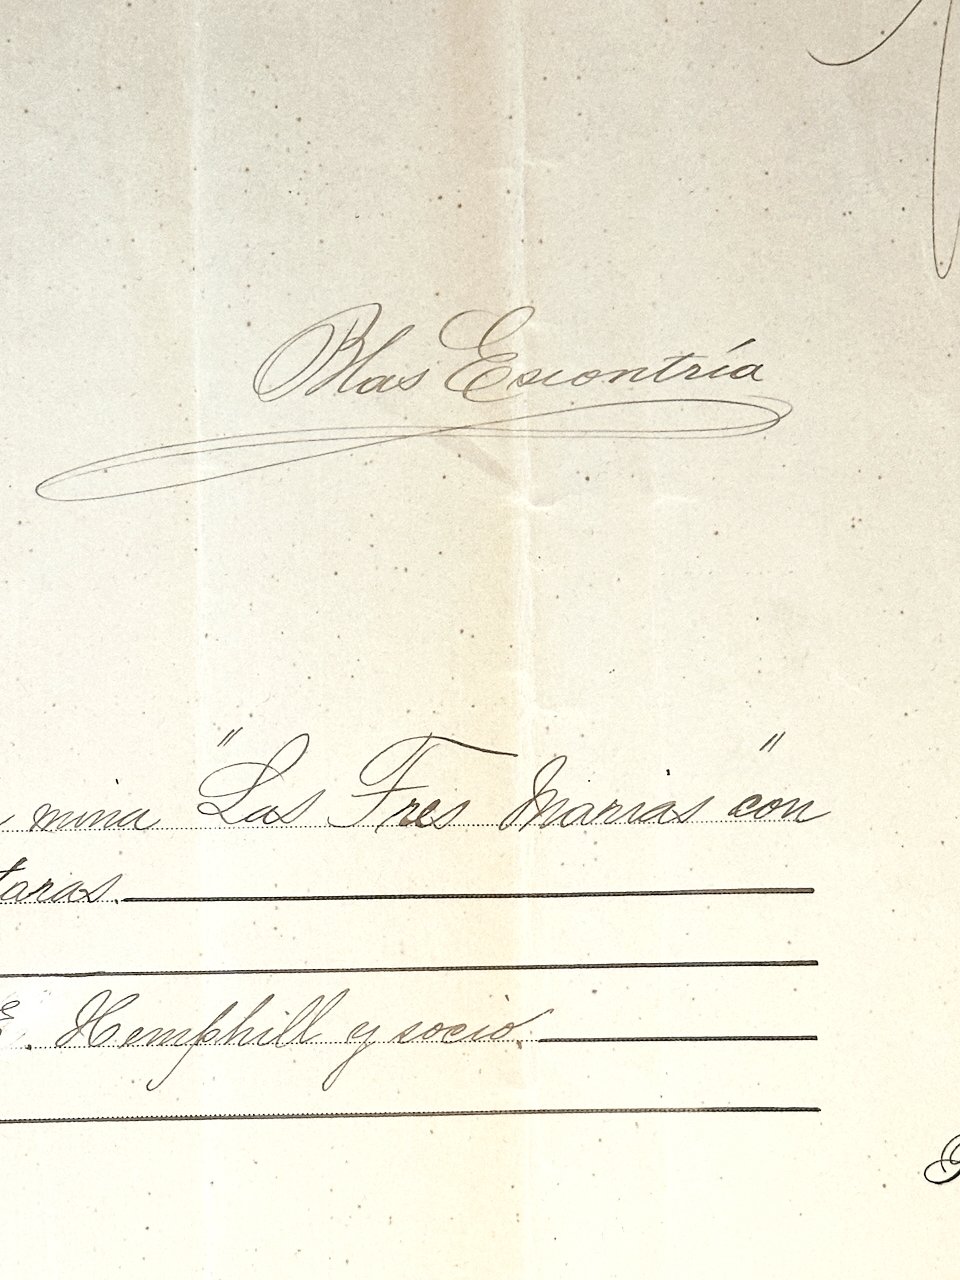 Blas Escontría
mina "Las Tres Marias" con
taras.
E. Hemphill y socio.